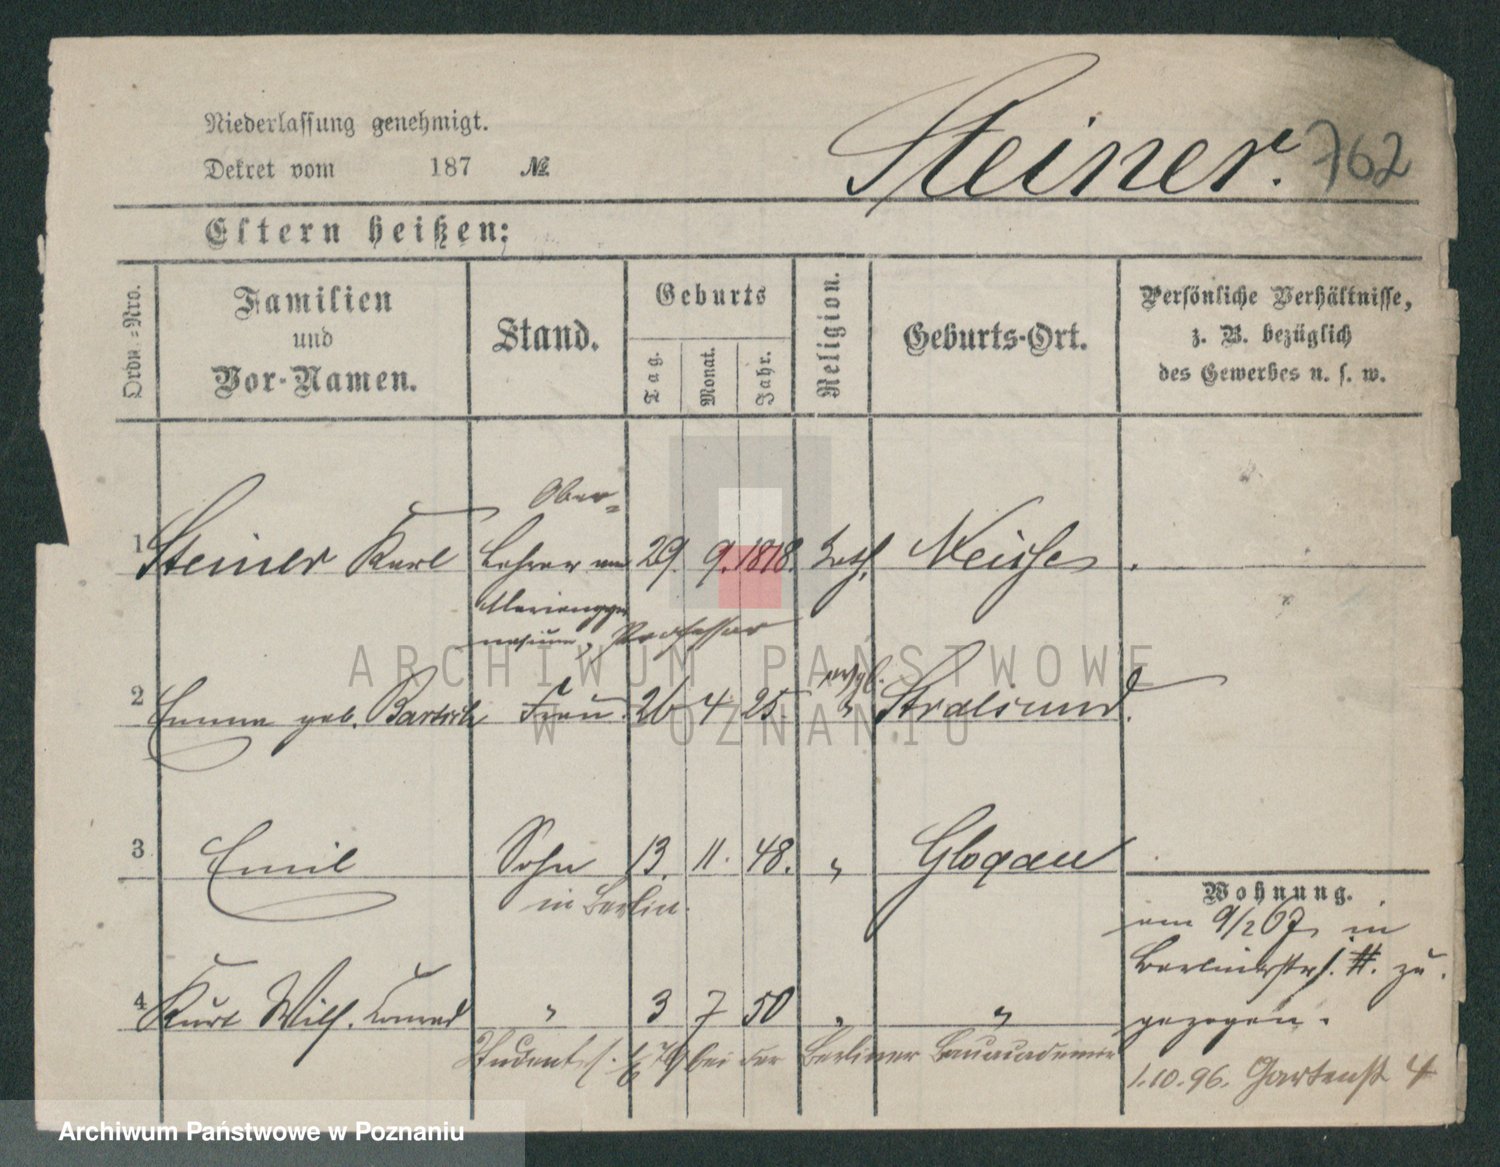 Niederlassung genehmigt.
Dekret vom 187 №
Steiner. 762
Eltern heißen:
Ordn.-Nro.
Familien und Vor-Namen.
Stand.
Geburts
Tag.
Monat.
Jahr.
Religion.
Geburts-Ort.
Persönliche Verhältnisse,
z. B. bezüglich
des Gewerbes u. s. w.
Ober-
1 Steiner Karl Lehrer am 29. 9. 1818. kath. Neisse
Mariengym
nasium, Professor
evgl.
2 Emma geb. Bartsch Frau 26 4. 25 " Stralsund.
3 Emil Sohn 13. 11. 48. " Glogau
in Berlin.
Wohnung.
am 9/2 67 in
Berlinerstr. zu
gezogen.
4 Kurt Wilh. Conrad " 3 7 50 " "
Student bei der Berliner Bauacademie
1.10.96. Gartenstr 4
ARCHIWUM PAŃSTWOWE
W POZNANIU
Archiwum Państwowe w Poznaniu